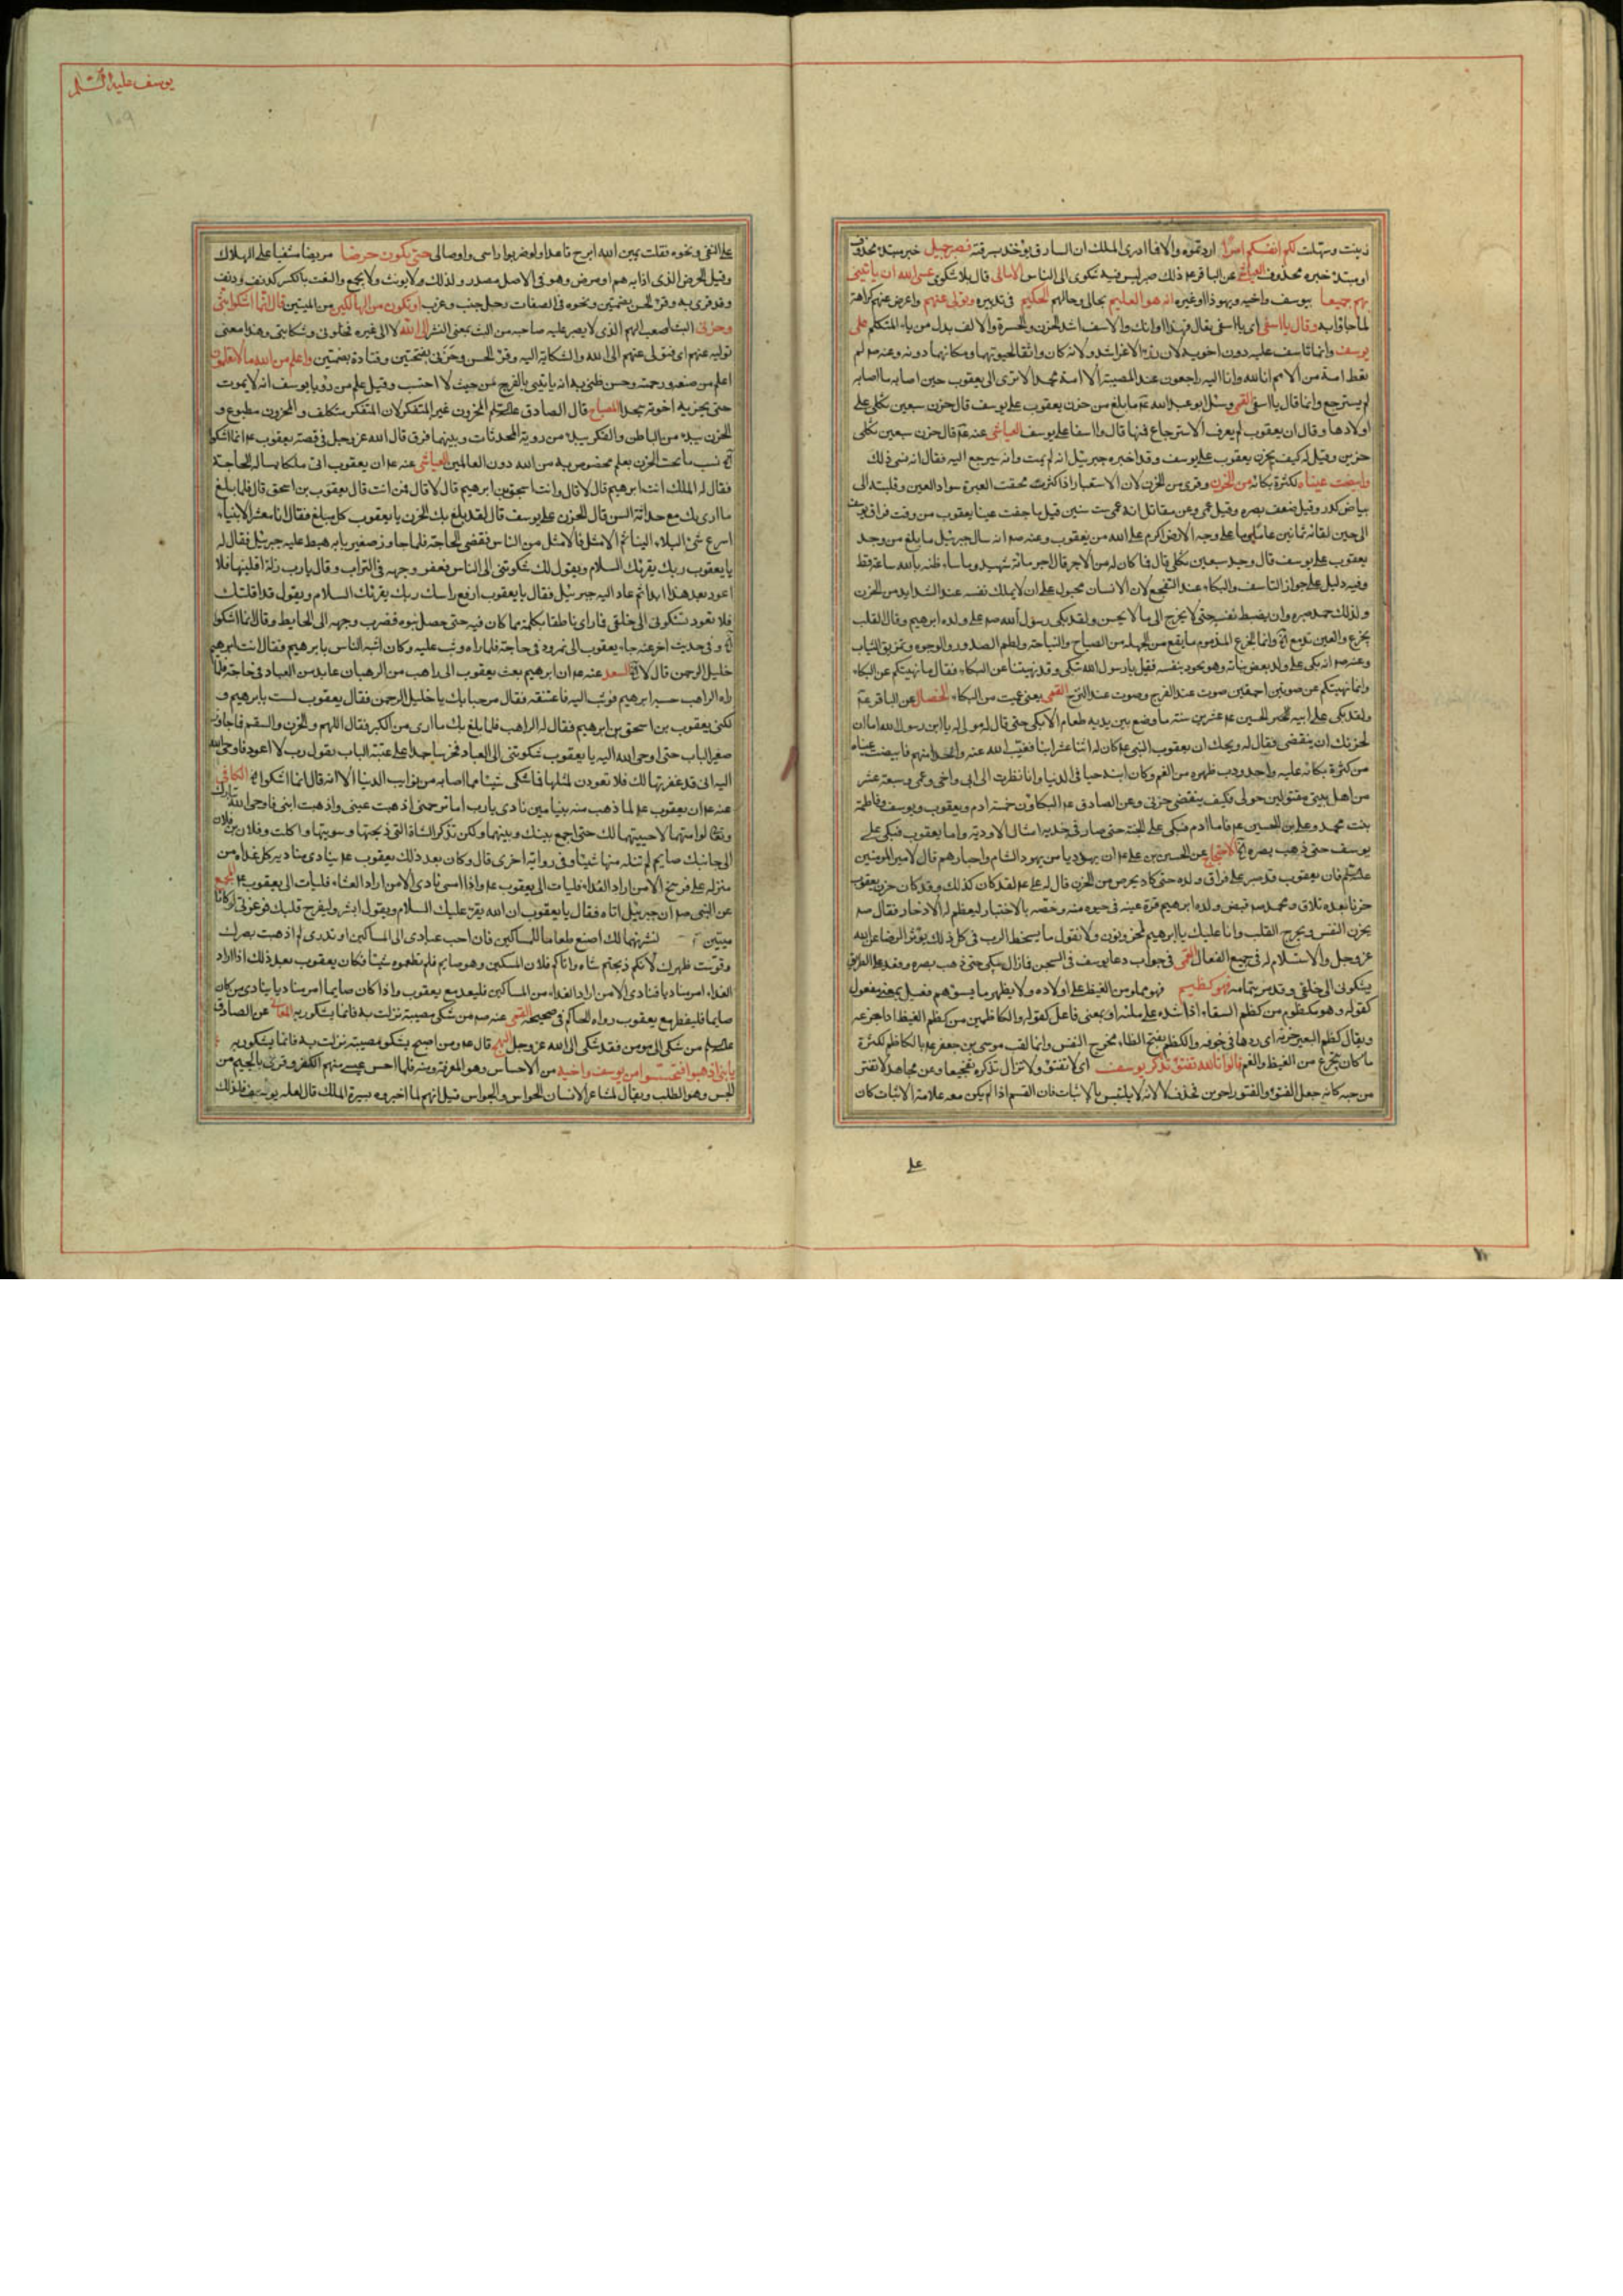 زينت وسهلت لكم انفسكم امرا اردتموه والا فما ادرى الملك ان السارق يؤخذ بسرقته فصبر جميل خبر مبتدء محذوف
او مبتدء خبره محذوف العياشى عن الباقر ع ذلك صبر ليس فيه شكوى الى الناس عسى الله ان ياتينى
بهم جميعا بيوسف واخيه ويهوذا او غيره انه هو العليم بحالى وحالهم الحكيم فى تدبيره وتولى عنهم واعرض عنهم كراهة
لما جاؤا به وقال يا اسفى اى يا اسفى تعال فهذا اوانك والاسف اشد الحزن والحسرة والالف بدل من ياء المتكلم على
يوسف وانما تاسف عليه دون اخويه لان رزءه الاعز اشد ولانه كان واثقا بحيوتهما ومكانهما دونه وعنه ص لم
يعط امة من الامم انا لله وانا اليه راجعون عند المصيبة الا امة محمد الا ترى الى يعقوب حين اصابه ما اصابه
لم يسترجع وانما قال يا اسفى القمى وسئل ابو عبد الله ع ما بلغ من حزن يعقوب على يوسف قال حزن سبعين ثكلى على
اولادها وقال ان يعقوب لم يعرف الاسترجاع فمنها قال وا اسفا على يوسف العياشى عنه ع قال حزن سبعين ثكلى
حزين وقيل له كيف يحزن يعقوب على يوسف وقد اخبره جبرئيل انه لم يمت وانه سيرجع اليه فقال انه نسى ذلك
وابيضت عيناه لكثرة بكائه من الحزن وقرى من الحزن لان الاستعبار اذا كثر محقت العبرة سواد العين وقلبته الى
بياض كدر وقيل ضعف بصره وقيل عمى وعن مقاتل انه عمى ست سنين قيل ما جفت عينا يعقوب من وقت فراق يوسف
الى حين لقائه ثمانين عاما وما على وجه الارض اكرم على الله من يعقوب وعنه ص انه سال جبرئيل ما بلغ من وجد
يعقوب على يوسف قال وجد سبعين ثكلى قال فما كان له من الاجر قال اجر مائة شهيد وما ساء ظنه بالله ساعة قط
وفيه دليل على جواز التاسف والبكاء عند التفجع لان الانسان مجبول على ان لا يملك نفسه عند الشدايد من الحزن
ولذلك حمد صبره وان يضبط نفسه حتى لا يخرج الى ما لا يحسن ولقد بكى رسول الله ص على ولده ابرهيم وقال القلب
يجزع والعين تدمع وانما الجزع المذموم ما يقع من الجهلة من الصياح والنياحة ولطم الصدور والوجوه وتمزيق الثياب
وعنه ص انه بكى على ولد بعض بناته وهو يجود بنفسه فقيل يا رسول الله تبكى وقد نهيتنا عن البكاء فقال ما نهيتكم عن البكاء
وانما نهيتكم عن صوتين احمقين صوت عند الفرح وصوت عند الترح القمى يعنى عميت من البكاء الخصال عن الباقر ع
ولقد بكى على ابيه الحسين ع عشرين سنة ما وضع بين يديه طعام الا بكى حتى قال له مولى له يا ابن رسول الله اما ان
لحزنك ان ينقضى فقال له ويحك ان يعقوب النبى ع كان له اثنا عشر ابنا فغيب الله عنه واحدا منهم فابيضت عيناه
من كثرة بكائه عليه واحدودب ظهره من الغم وكان ابنه حيا فى الدنيا وانا نظرت الى ابى واخى وعمى وسبعة عشر
من اهل بيتى مقتولين حولى فكيف ينقضى حزنى وعن الصادق ع البكاؤن خمسة ادم ويعقوب ويوسف وفاطمة
بنت محمد وعلى بن الحسين ع فاما ادم فبكى على الجنة حتى صار فى خديه امثال الاودية واما يعقوب فبكى على
يوسف حتى ذهب بصره الاحتجاج عن الحسين بن على ع ان يهوديا من يهود الشام واحبارهم قال لامير المؤمنين
فان يعقوب قد صبر على فراق ولده حتى كاد يحرض من الحزن قال له على ع لقد كان كذلك وقد كان حزن يعقوب
حزنا بعده تلاق ومحمد ص قبض ولده ابرهيم قرة عينه فى حيوة منه وخصه بالاختبار ليعظم له الادخار فقال ص
يحزن النفس ويجزع القلب وانا عليك يا ابرهيم لمحزونون ولا نقول ما يسخط الرب فى كل ذلك يؤثر الرضا عن الله
عز وجل والاستلام له فى جميع الفعال القمى فى جواب دعا يوسف فى السجن فما زال يبكى حتى ذهب بصره
يشكونى الى خلقى وقد مر بتمامه فهو كظيم فهو مملو من الغيظ على اولاده ولا يظهر ما يسوؤهم فعيل بمعنى مفعول
كقوله وهو مكظوم من كظم السقاء اذا شده على ملئه او بمعنى فاعل كقوله والكاظمين من كظم الغيظ اذا جرعه
ويقال كظم البعير جرته اى ردها فى جوفه والكظم بفتح الظاء مخرج النفس وانما لقب موسى بن جعفر ع بالكاظم لكثرة
ما كان يتجرع من الغيظ والغم قالوا تالله تفتؤ تذكر يوسف اى لا تفتؤ ولا تزال تذكره تفجعا وعن مجاهد لا تفتر
من حبه كانه جعل الفتؤ والفتور اخوين فحذف لا لانه لا يلتبس بالاثبات فان القسم اذا لم يكن معه علامة الاثبات كان
على
يوسف عليه السلم
١٠٩
على النفى ونحوه فقلت يمين الله ابرح قاعدا ولو ضربوا راسى واوصالى حتى تكون حرضا مريضا مشفيا على الهلاك
وقيل الحرض الذى اذابه هم او مرض وهو فى الاصل مصدر ولذلك لا يؤنث ولا يجمع والنعت بالكسر كدنف ودنف
وقد قرى به وقرء الحسن بضمتين ونحوه فى الصفات رجل جنب وغرب او تكون من الهالكين من الميتين قال انما اشكو بثى
وحزنى البث اصعب الهم الذى لا يصبر عليه صاحبه من البث بمعنى النشر الى الله لا الى غيره فخلونى وشكايتى وهذا معنى
توليه عنهم اى فتولى عنهم الى الله والشكاية اليه وقرء الحسن وحزنى بفتحتين وقتادة بضمتين واعلم من الله ما لا تعلمون
اعلم من صنعه ورحمته وحسن ظنى به انه ياتينى بالفرج من حيث لا احتسب وقيل علم من رؤيا يوسف انه لا يموت
حتى يخر به اخوته سجدا المصباح قال الصادق المحزون غير المتفكر لان المتفكر متكلف والمحزون مطبوع و
الحزن يبدء من الباطن والفكر يبدء من روية المحدثات وبينهما فرق قال الله عز وجل فى قصة يعقوب ع انما اشكوا
نسب ما تحت الحزن بعلم مخصوص به من الله دون العالمين العياشى عنه ع ان يعقوب اتى ملكا يساله الحاجة
فقال له الملك انت ابرهيم قال لا قال وانت اسحق بن ابرهيم قال لا قال فمن انت قال يعقوب بن اسحق قال فما بلغ
ما ارى بك مع حداثة السن قال الحزن على يوسف قال لقد بلغ بك الحزن يا يعقوب كل مبلغ فقال انا معشر الانبياء
اسرع شئ البلاء الينا ثم الامثل فالامثل من الناس فقضى الحاجة فلما جاوز صغير بابه هبط عليه جبرئيل فقال له
يا يعقوب ربك يقرئك السلام ويقول لك شكوتنى الى الناس فعفر وجهه فى التراب وقال يا رب زلة اقلنيها فلا
اعود بعد هذا ابدا ثم عاد اليه جبرئيل فقال يا يعقوب ارفع راسك ربك يقرئك السلام ويقول قد اقلتك
فلا تعود تشكونى الى خلقى فما راى ناطقا بكلمة مما كان فيه حتى حصل بنوه فضرب وجهه الى الحايط وقال انما اشكوا
وفى حديث اخر عنه جاء يعقوب الى نمرود فى حاجة فلما راه وثب عليه وكان اشبه الناس بابرهيم فقال انت ابرهيم
خليل الرحمن قال لا السعد عنه ع ان ابرهيم بعث يعقوب الى راهب من الرهبان عابد من العباد فى حاجة فلما
راه الراهب حسبه ابرهيم فوثب اليه فاعتنقه فقال مرحبا بك يا خليل الرحمن فقال يعقوب لست بابرهيم و
لكنى يعقوب بن اسحق بن ابرهيم فقال له الراهب فلما بلغ بك ما ارى من الكبر فقال الهم والحزن والسقم فما جاوز
صغير الباب حتى اوحى الله اليه يا يعقوب شكوتنى الى العباد فخر ساجدا على عتبة الباب يقول رب لا اعود فاوحى الله
اليه انى قد غفرتها لك فلا تعودن لمثلها فما شكى شيئا مما اصابه من نوايب الدنيا الا انه قال انما اشكوا الكافى
عنه ع ان يعقوب ع لما ذهب منه بنيامين نادى يا رب اما ترحمنى اذهبت عينى واذهبت ابنى فاوحى الله تبارك
وتعالى لو امتهما لاحييتهما لك حتى اجمع بينك وبينهما ولكن تذكر الشاة التى ذبحتها وسويتها واكلت وفلان بن فلان
الى جانبك صايم لم تنله منها شيئا وفى رواية اخرى قال وكان بعد ذلك يعقوب ع ينادى مناديه كل غداة من
منزله على فرسخ الا من اراد الغداء فليات الى يعقوب ع واذا امسى نادى الا من اراد العشاء فليات الى يعقوب ع المجمع
عن النبى ص ان جبرئيل اتاه فقال يا يعقوب ان الله يقرء عليك السلام ويقول ابشر وليفرح قلبك فوعزتى لو كانا
ميتين لنشرتهما لك اصنع طعاما للمساكين فان احب عبادى الى المساكين او تدرى لم اذهبت بصرك
وقوست ظهرك لانكم ذبحتم شاة واتاكم فلان المسكين وهو صايم فلم تطعموه شيئا فكان يعقوب بعد ذلك اذا اراد
الغداء امر مناديا فنادى الا من اراد الغداء من المساكين فليتغد مع يعقوب واذا كان صايما امر مناديا ينادى من كان
صايما فليفطر مع يعقوب رواه الحاكم فى صحيحه القمى عنه ص من شكى مصيبة نزلت به فانما يشكو ربه عن الصادق
من شكى الى مؤمن فقد شكى الى الله عز وجل قال ع ومن اصبح يشكو مصيبة نزلت به فانما يشكو ربه
يا بنى اذهبوا فتحسسوا من يوسف واخيه من الاحساس وهو المعرفة ومنه فلما احس عيسى منهم الكفر وقرئ بالجيم من
الجس وهو الطلب ويقال لمشاعر الانسان الحواس والجواس قيل انهم لما اخبروه بسيرة الملك قال لعله يوسف